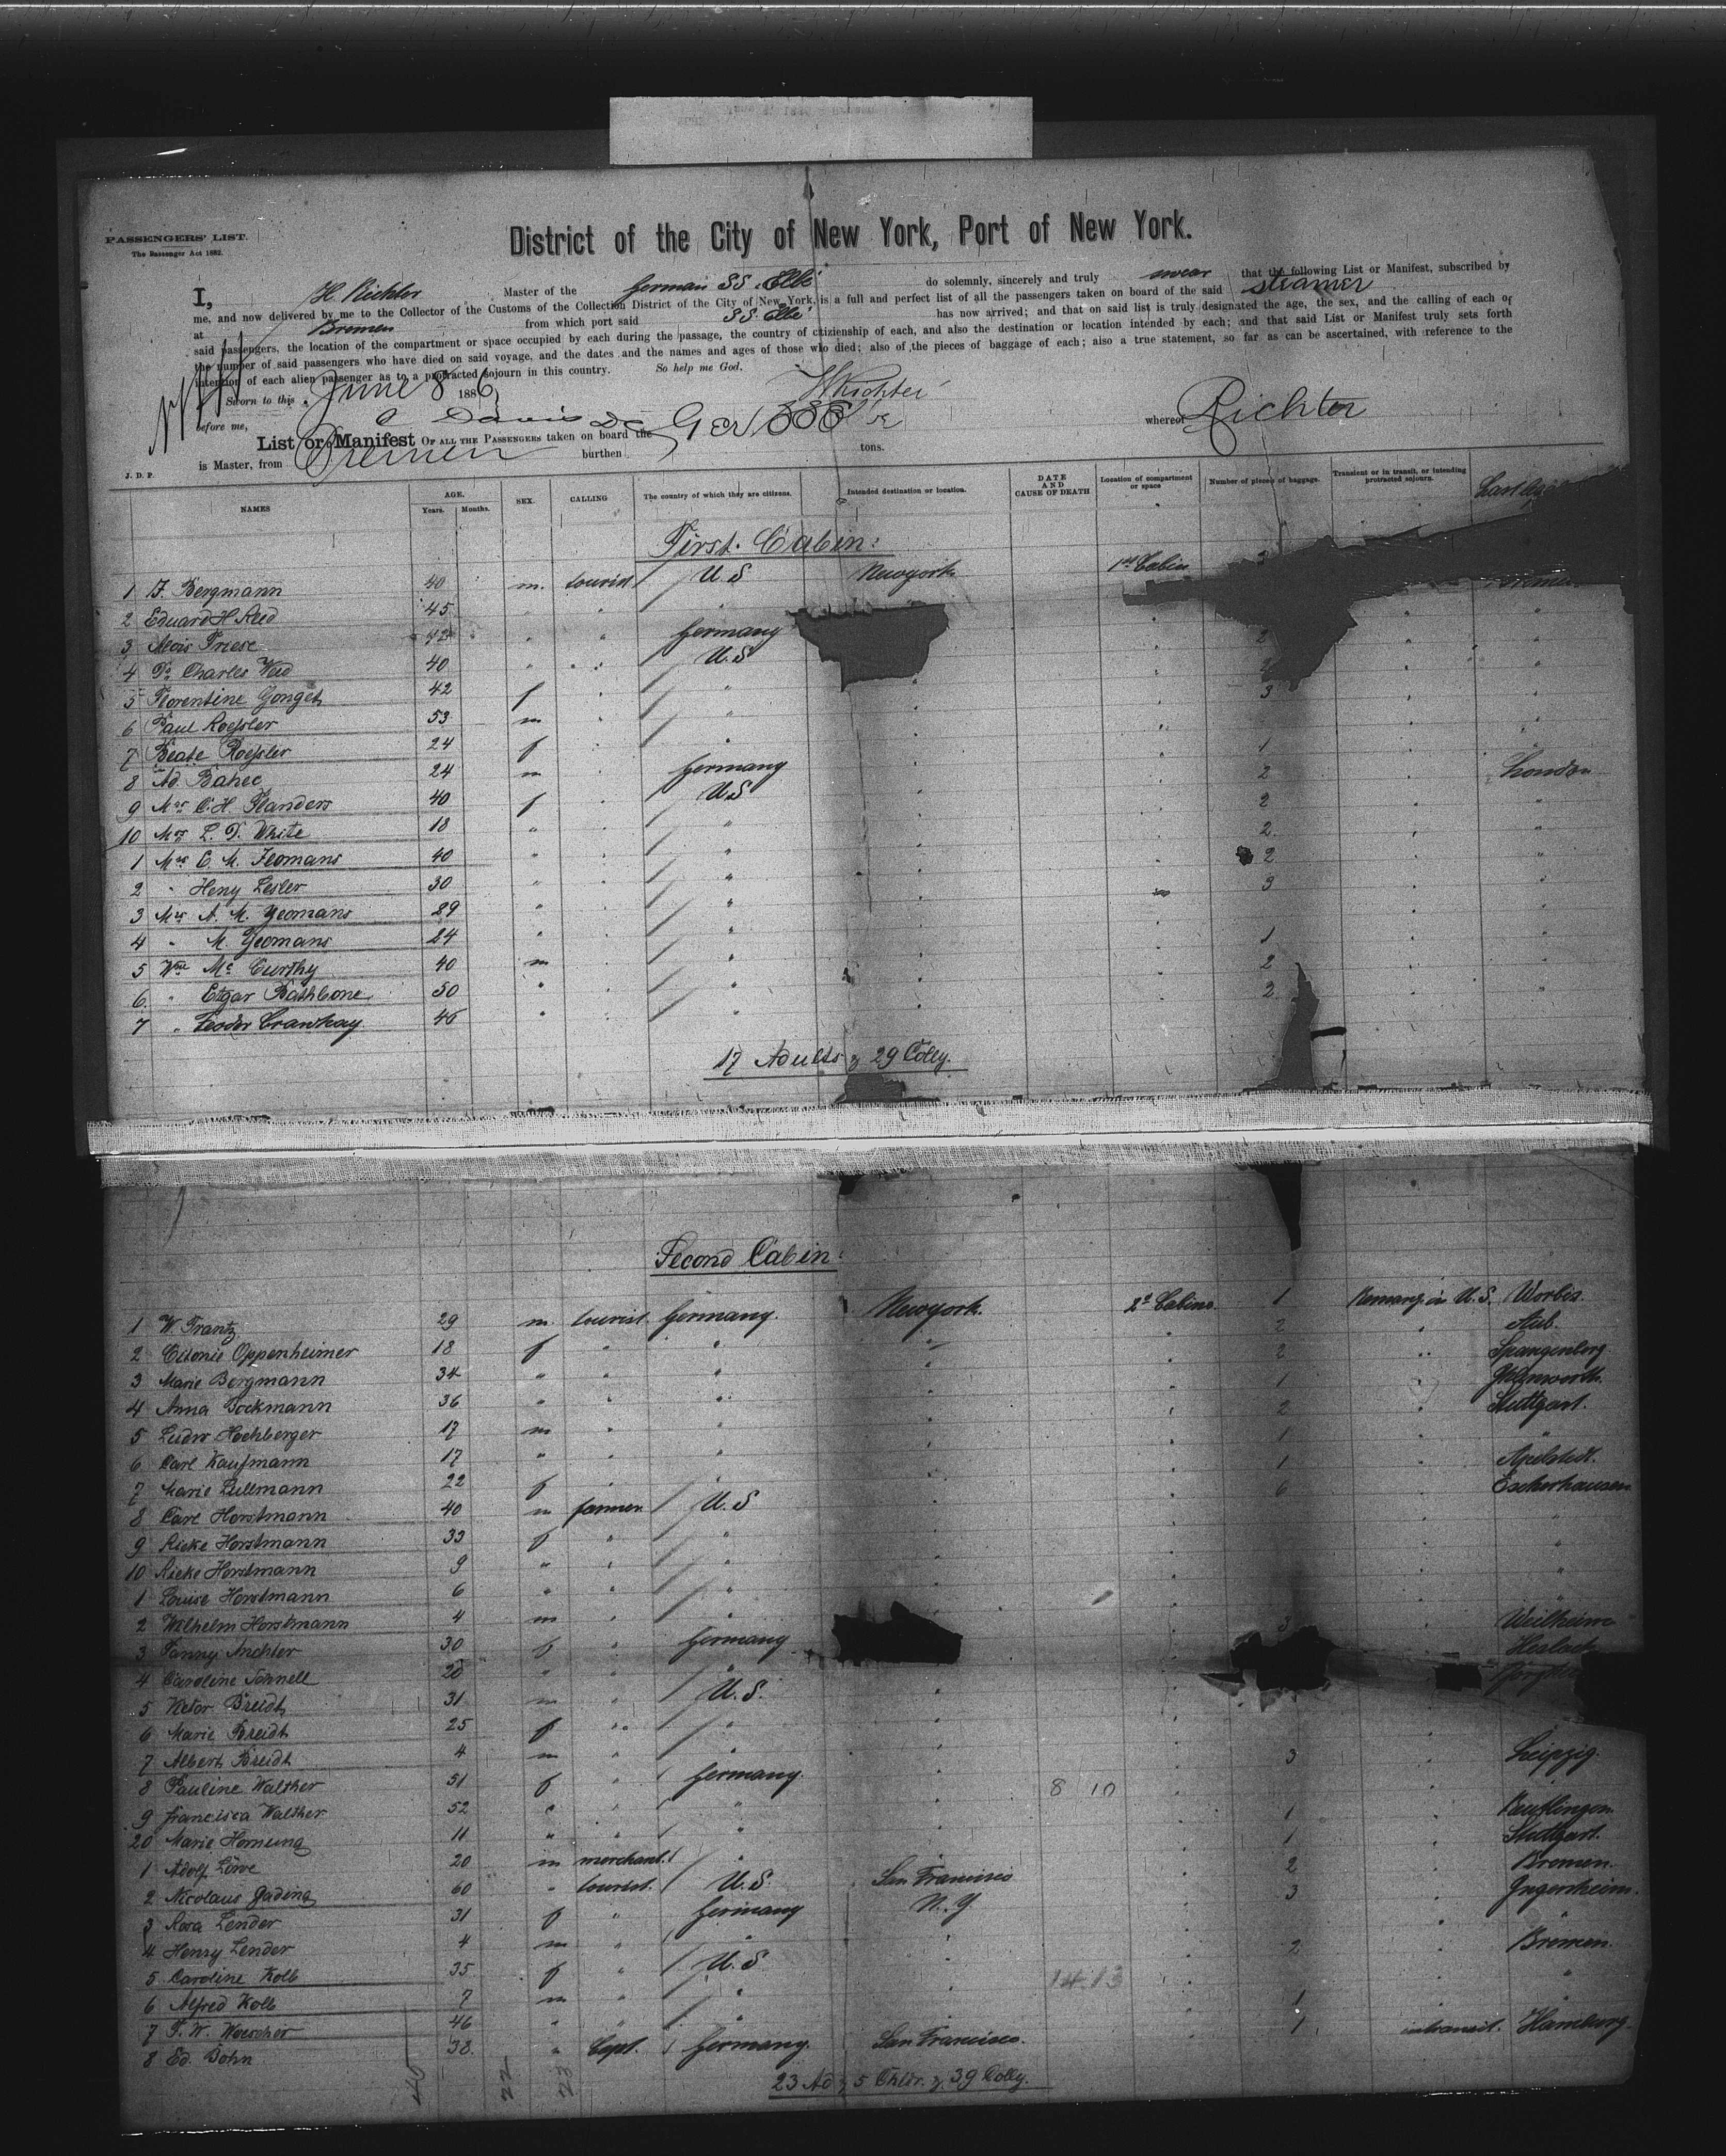 PASSENGERS' LIST.
The Passenger Act 1882.
District of the City of New York, Port of New York.
I, H. Richter Master of the German SS Elbe do solemnly, sincerely and truly swear that the following List or Manifest, subscribed by
me, and now delivered by me to the Collector of the Customs of the Collection District of the City of New York, is a full and perfect list of all the passengers taken on board of the said steamer
at Bremen from which port said SS Elbe has now arrived; and that on said list is truly designated the age, the sex, and the calling of each of
said passengers, the location of the compartment or space occupied by each during the passage, the country of citizienship of each, and also the destination or location intended by each; and that said List or Manifest truly sets forth
the number of said passengers who have died on said voyage, and the dates and the names and ages of those who died; also of the pieces of baggage of each; also a true statement, so far as can be ascertained, with reference to the
intention of each alien passenger as to a protracted sojourn in this country. So help me God.
Sworn to this June 8 1886 HRichter
before me, C Davis
List or Manifest OF ALL THE PASSENGERS taken on board the whereof Richter
is Master, from Bremen burthen tons.
J. D. P.
NAMES AGE. Years. Months. SEX. CALLING The country of which they are citizens. Intended destination or location. DATE AND CAUSE OF DEATH Location of compartment or space Number of pieces of baggage. Transient or in transit, or intending protracted sojourn. Last
First Cabin:
1 F. Bergmann 40 m. tourist U S Newyork 1st Cabin 3
2 Eduard H Reed 45 " "
3 Alois Friese 42 " " Germany 2
4 Charles Weed 40 " " U.S 2
5 Florentine Gonget 42 f " " 3
6 Paul Roessler 53 m " "
7 Beate Roessler 24 f " " 1
8 Ad. Bahee 24 m Germany 2 London
9 Mrs C. H. Flanders 40 f U S 2 "
10 Mrs L. T. White 18 " " 2 "
1 Mrs C. M. Yeomans 40 " " 2 "
2 " Heny Lesler 30 " " 3 "
3 Mrs A. M. Yeomans 29 " "
4 " M. Yeomans 24 " " 1 "
5 Wm Mc Curthy 40 m " 2 "
6 " Edgar Rathbone 50 " " 2 "
7 " Feodor Crawhay 46 " "
17 Adults & 29 Colly.
Second Cabin:
1 W. Frantz 29 m tourist Germany. Newyork. 2d Cabine. 1 Remang. in U.S. Worbis.
2 Citonie Oppenheimer 18 f " " " 2 " Aub.
3 Marie Bergmann 34 " " " " 2 " Spangenberg.
4 Anna Bockmann 36 " " " " 1 "
5 Ludw Hochberger 17 m " " " 2 " Stuttgart.
6 Carl Kaufmann 17 " " " " 1 " "
7 Marie Lullmann 22 f " " " 1 " Apelstedt.
8 Carl Horstmann 40 m farmer U.S " 6 " Escherhausen
9 Rieke Horstmann 33 f " " " "
10 Rieke Horstmann 9 " " " " "
1 Louise Horstmann 6 " " " " "
2 Wilhelm Horstmann 4 m " " " "
3 Fanny Anchter 30 f " Germany 3 Weilheim
4 Caroline Schnell 20 " " "
5 Victor Breidt 31 m " U.S. "
6 Marie Breidt 25 f " " "
7 Albert Breidt 4 m " " "
8 Pauline Walther 51 f " Germany. 3 " Leipzig.
8 10
9 Francisca Walther 52 " " " "
20 Marie Hornung 11 " " " 1 " Reutlingen
1 Adolf Löwe 20 m merchant. " 1 " Stuttgart.
2 Nicolaus Gading 60 " tourist. U.S. San Francisco 2 " Bremen.
3 Rosa Lender 31 f " Germany N.Y. 3 " Ingersheim.
4 Henry Lender 4 m " " " "
5 Caroline Kolb 35 f " U.S " 2 " Bremen.
14.13
6 Alfred Kolb 7 m " " " "
7 F. W. Woescher 46 " " " " 1 "
8 Ed. Bohn 38. " Capt. Germany. San Francisco. 1 intransit. Hamburg.
23 Ad & 5 Chldr. & 39 Colly.
40 22 23